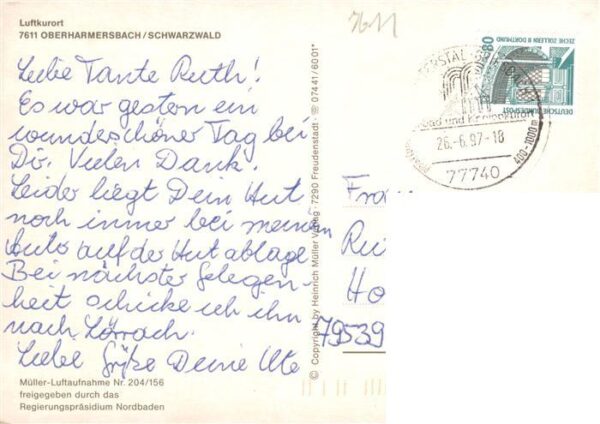 Luftkurort
7611 OBERHARMERSBACH/SCHWARZWALD
7611
Liebe Tante Ruth!
Es war gestern ein
wunderschöner Tag bei
Dir. Vielen Dank.
Leider liegt Dein Hut
noch immer bei meinem
Auto auf der Hutablage
Bei nächster Gelegen-
heit schicke ich ihn
nach Lörrach.
Liebe Grüße Deine Ute
Müller-Luftaufnahme Nr. 204/156
freigegeben durch das
Regierungspräsidium Nordbaden
© Copyright by Heinrich Müller Verlag · 7290 Freudenstadt · ☎ 07441/6001*
80
ZECHE ZOLLERN II DORTMUND
DEUTSCHE BUNDESPOST
und Kneippkurort
26.-6.97-18
400-1000 m
77740
Fra
Ru
Ho
79539